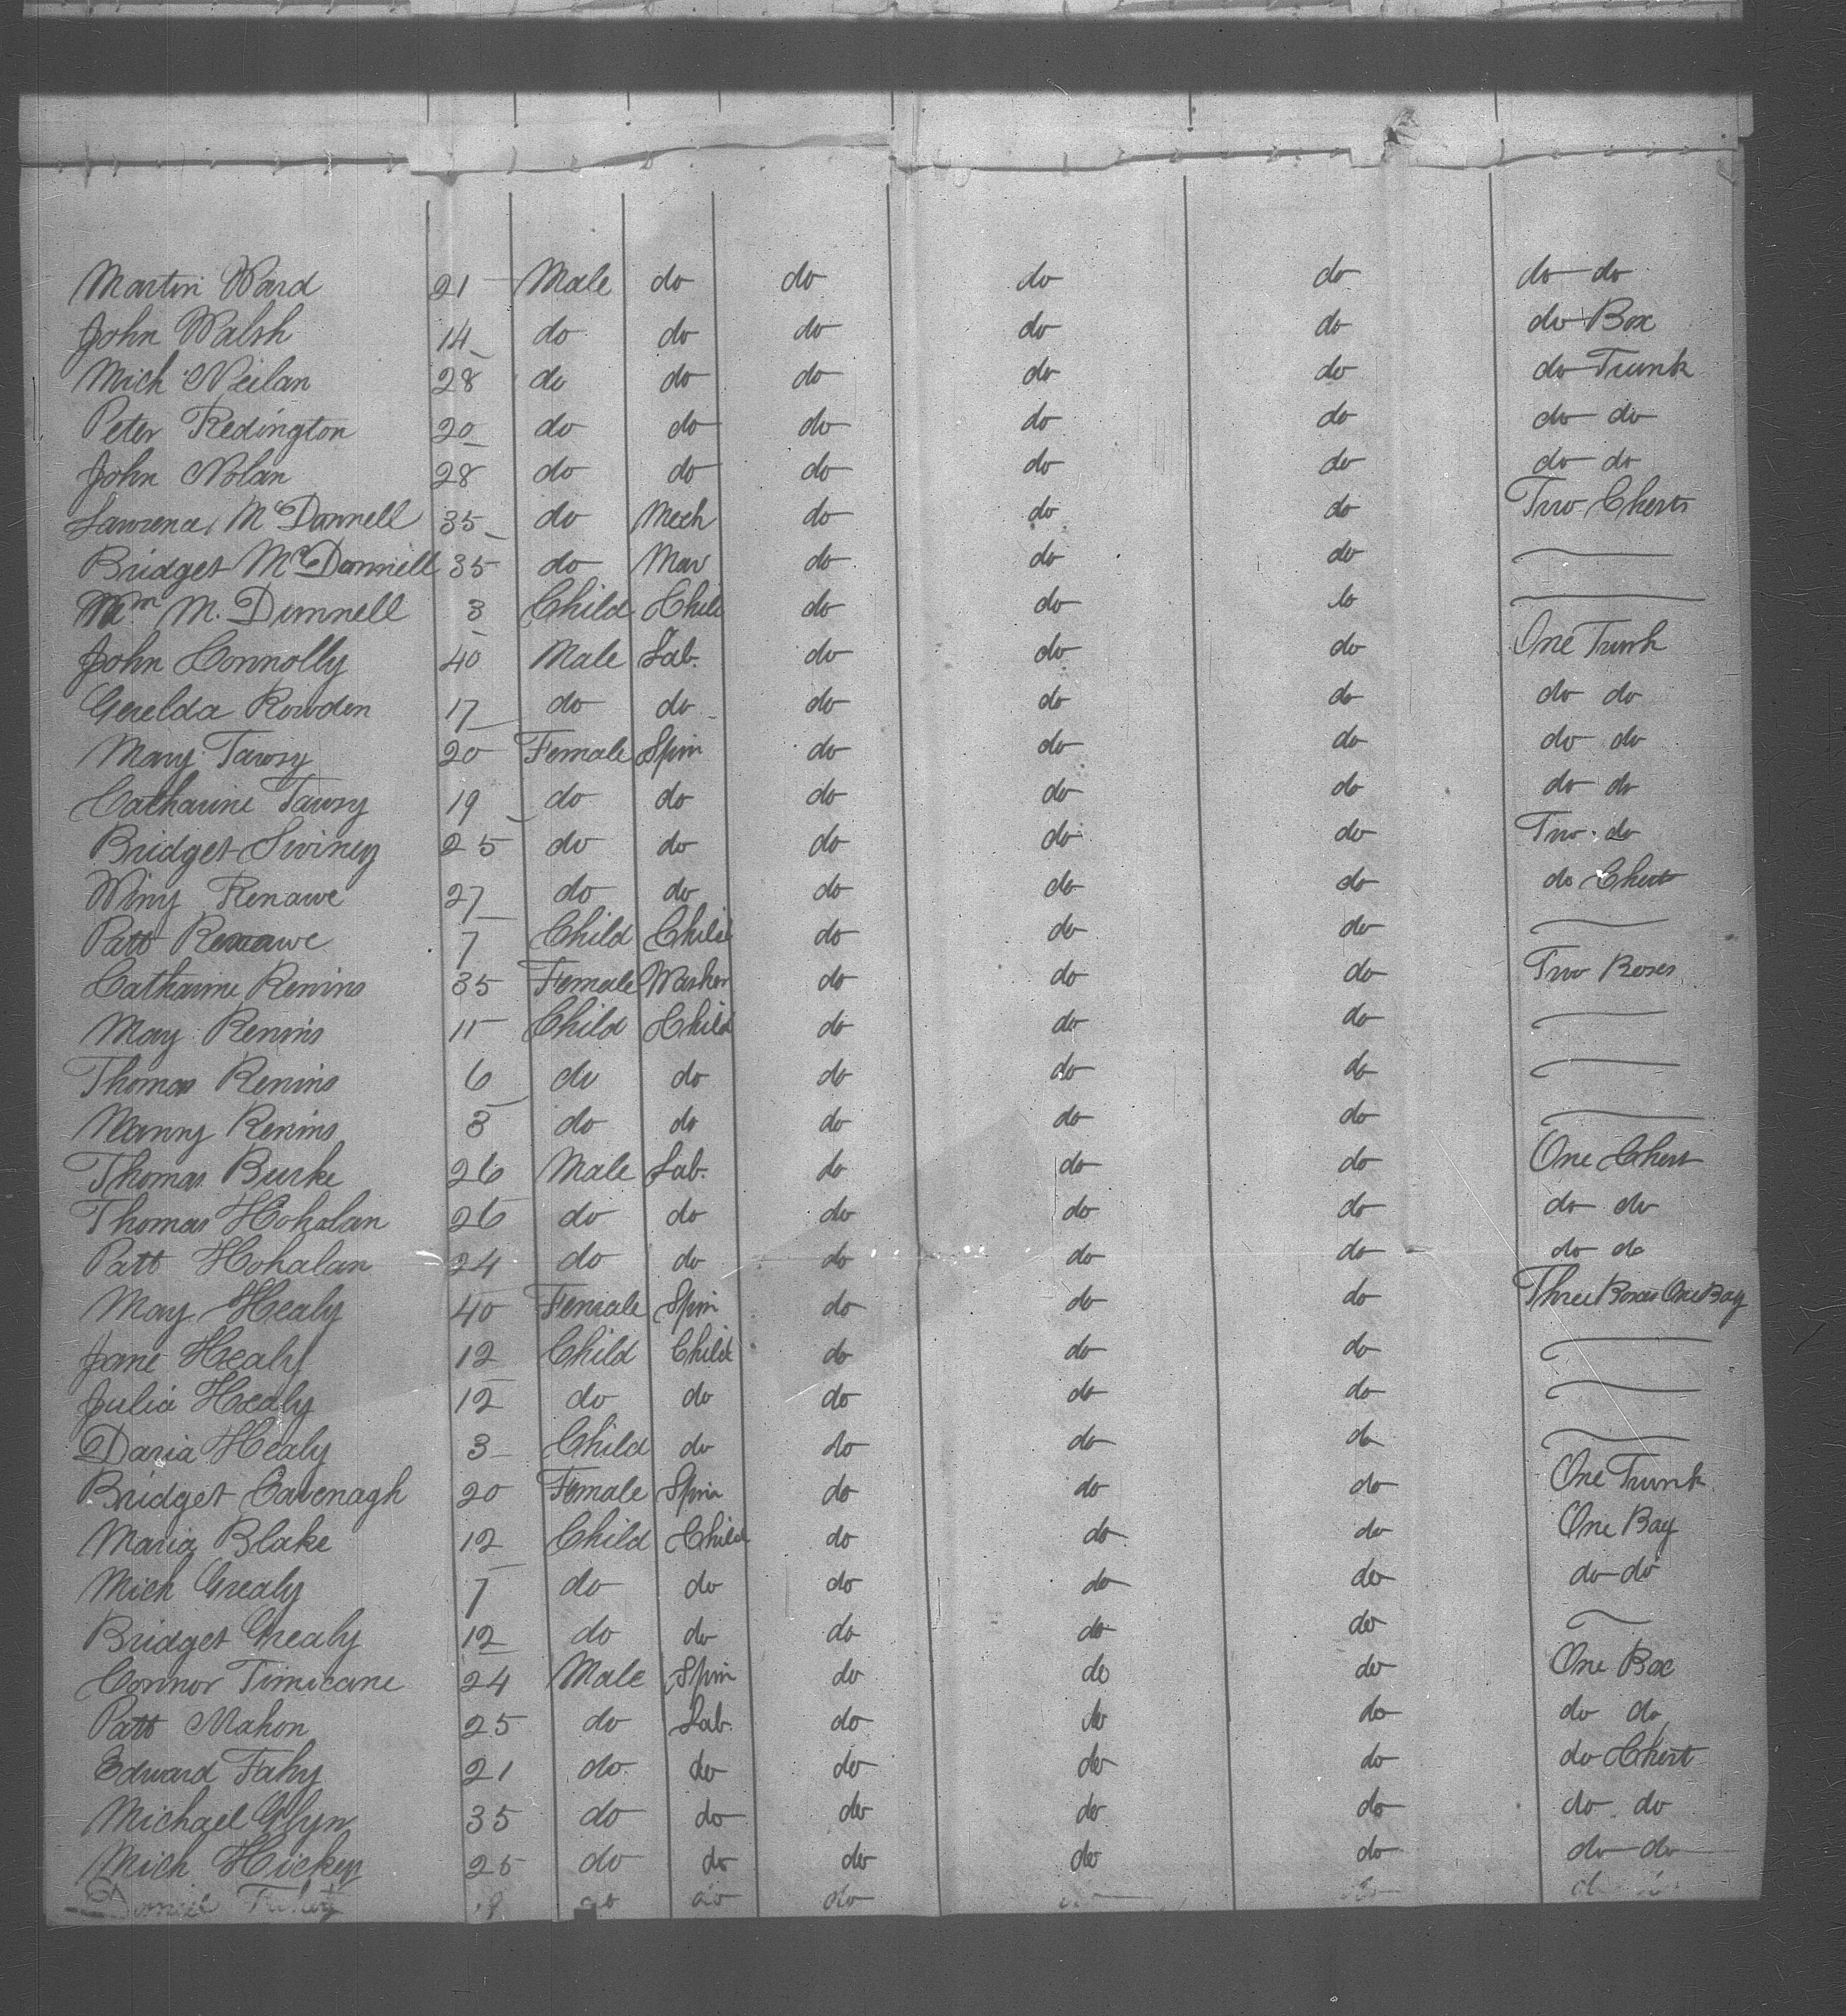 Martin Ward 21 Male do do do do do do
John Walsh 14 do do do do do do Box
Mich Neilan 28 do do do do do do Trunk
Peter Redington 20 do do do do do do do
John Nolan 28 do do do do do do do
Lawrence McDonnell 35 do Mech do do do Two Chests
Bridget McDonnell 35 do Mar do do do
Wm M. Dunnell 3 Child Chil do do do
John Connolly 40 Male Lab. do do do One Trunk
Gerelda Rowden 17 do do do do do do do
Mary Tawsy 20 Female Spin do do do do do
Catharine Tawsy 19 do do do do do do do
Bridget Swiney 25 do do do do do Two do
Winy Renawe 27 do do do do do do Chest
Patt Renawe 7 Child Child do do do
Catharine Renins 35 Female Washer do do do Two Boxes
May Renins 11 Child Child do do do
Thomas Renins 6 do do do do do
Nanny Renins 3 do do do do do
Thomas Burke 26 Male Lab. do do do One Chest
Thomas Hohalan 26 do do do do do do do
Patt Hohalan 24 do do do do do do do
May Healy 40 Female Spin do do do Three Boxes One Bag
Jane Healy 12 Child Child do do do
Julia Healy 12 do do do do do
Daria Healy 3 Child do do do do
Bridget Cavenagh 20 Female Spin do do do One Trunk
Maria Blake 12 Child Child do do do One Bag
Mich Grealy 7 do do do do do do do
Bridget Grealy 12 do do do do do
Connor Timicane 24 Male Spin do do do One Box
Patt Mahon 25 do Lab. do do do do do
Edward Fahy 21 do do do do do do Chest
Michael Glyn 35 do do do do do do do
Mich Hickey 25 do do do do do do do
do do do